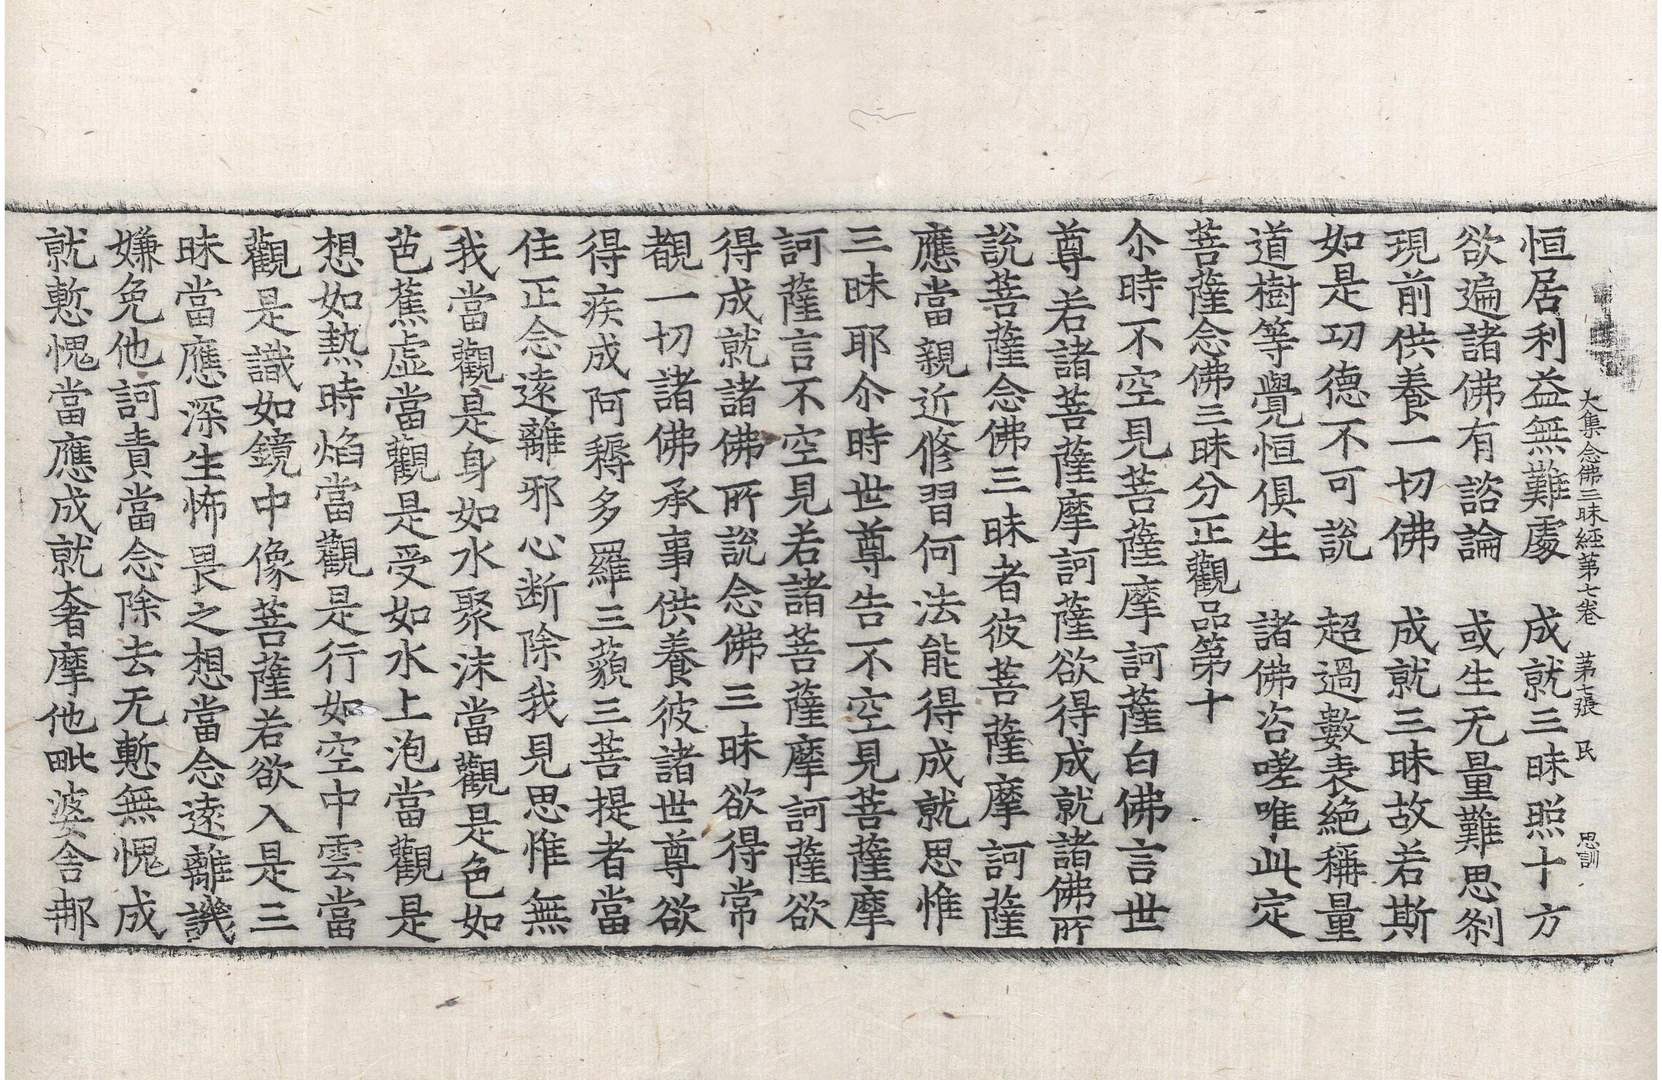 大集念佛三昧經第七卷　第七張　民　思訓
恒居利益無難處　成就三昧照十方
欲遍諸佛有諮論　或生无量難思刹
現前供養一切佛　成就三昧故若斯
如是功德不可說　超過數表絶稱量
道樹等覺恒俱生　諸佛咨嗟唯此定
菩薩念佛三昧分正觀品第十
尒時不空見菩薩摩訶薩白佛言世
尊若諸菩薩摩訶薩欲得成就諸佛所
說菩薩念佛三昧者彼菩薩摩訶薩
應當親近修習何法能得成就思惟
三昧耶尒時世尊告不空見菩薩摩
訶薩言不空見若諸菩薩摩訶薩欲
得成就諸佛所說念佛三昧欲得常
覩一切諸佛承事供養彼諸世尊欲
得疾成阿耨多羅三藐三菩提者當
住正念遠離邪心断除我見思惟無
我當觀是身如水聚沫當觀是色如
芭蕉虛當觀是受如水上泡當觀是
想如熱時焰當觀是行如空中雲當
觀是識如鏡中像菩薩若欲入是三
昧當應深生怖畏之想當念遠離譏
嫌免他訶責當念除去无慙無愧成
就慙愧當應成就奢摩他毗婆舍那